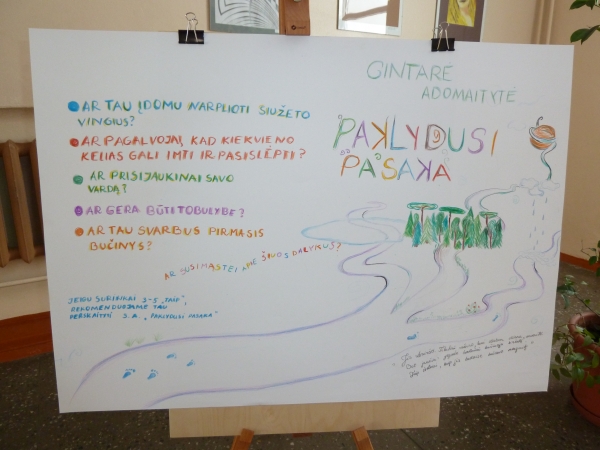 GINTARĖ
ADOMAITYTĖ
"PAKLYDUSI
PASAKA"
AR TAU ĮDOMU NARPLIOTI SIUŽETO
VINGIUS?
AR PAGALVOJAI, KAD KIEKVIENO
KELIAS GALI IMTI IR PASISLĖPTI?
AR PRISIJAUKINAI SAVO
VARDĄ?
AR GERA BŪTI TOBULYBE?
AR TAU SVARBUS PIRMASIS
BUČINYS?
AR SUSIMĄSTEI APIE ŠIUOS DALYKUS?
JEIGU SURINKAI 3-5 „TAIP",
REKOMENDUOJAME TAU
PERSKAITYTI G.A. „PAKLYDUSI PASAKA"